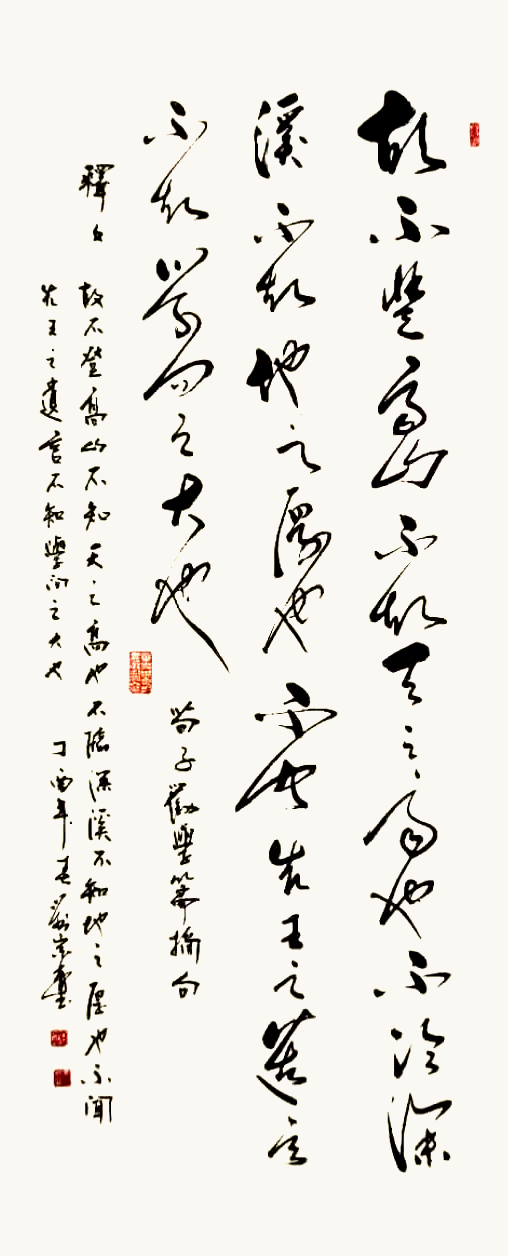 故不登高山不知天之高也不臨深
溪不知地之厚也不聞先王之遺言
不知學問之大也
荀子勸學篇摘句
釋文
故不登高山不知天之高也不臨深溪不知地之厚也不聞
先王之遺言不知學問之大也 丁酉年春